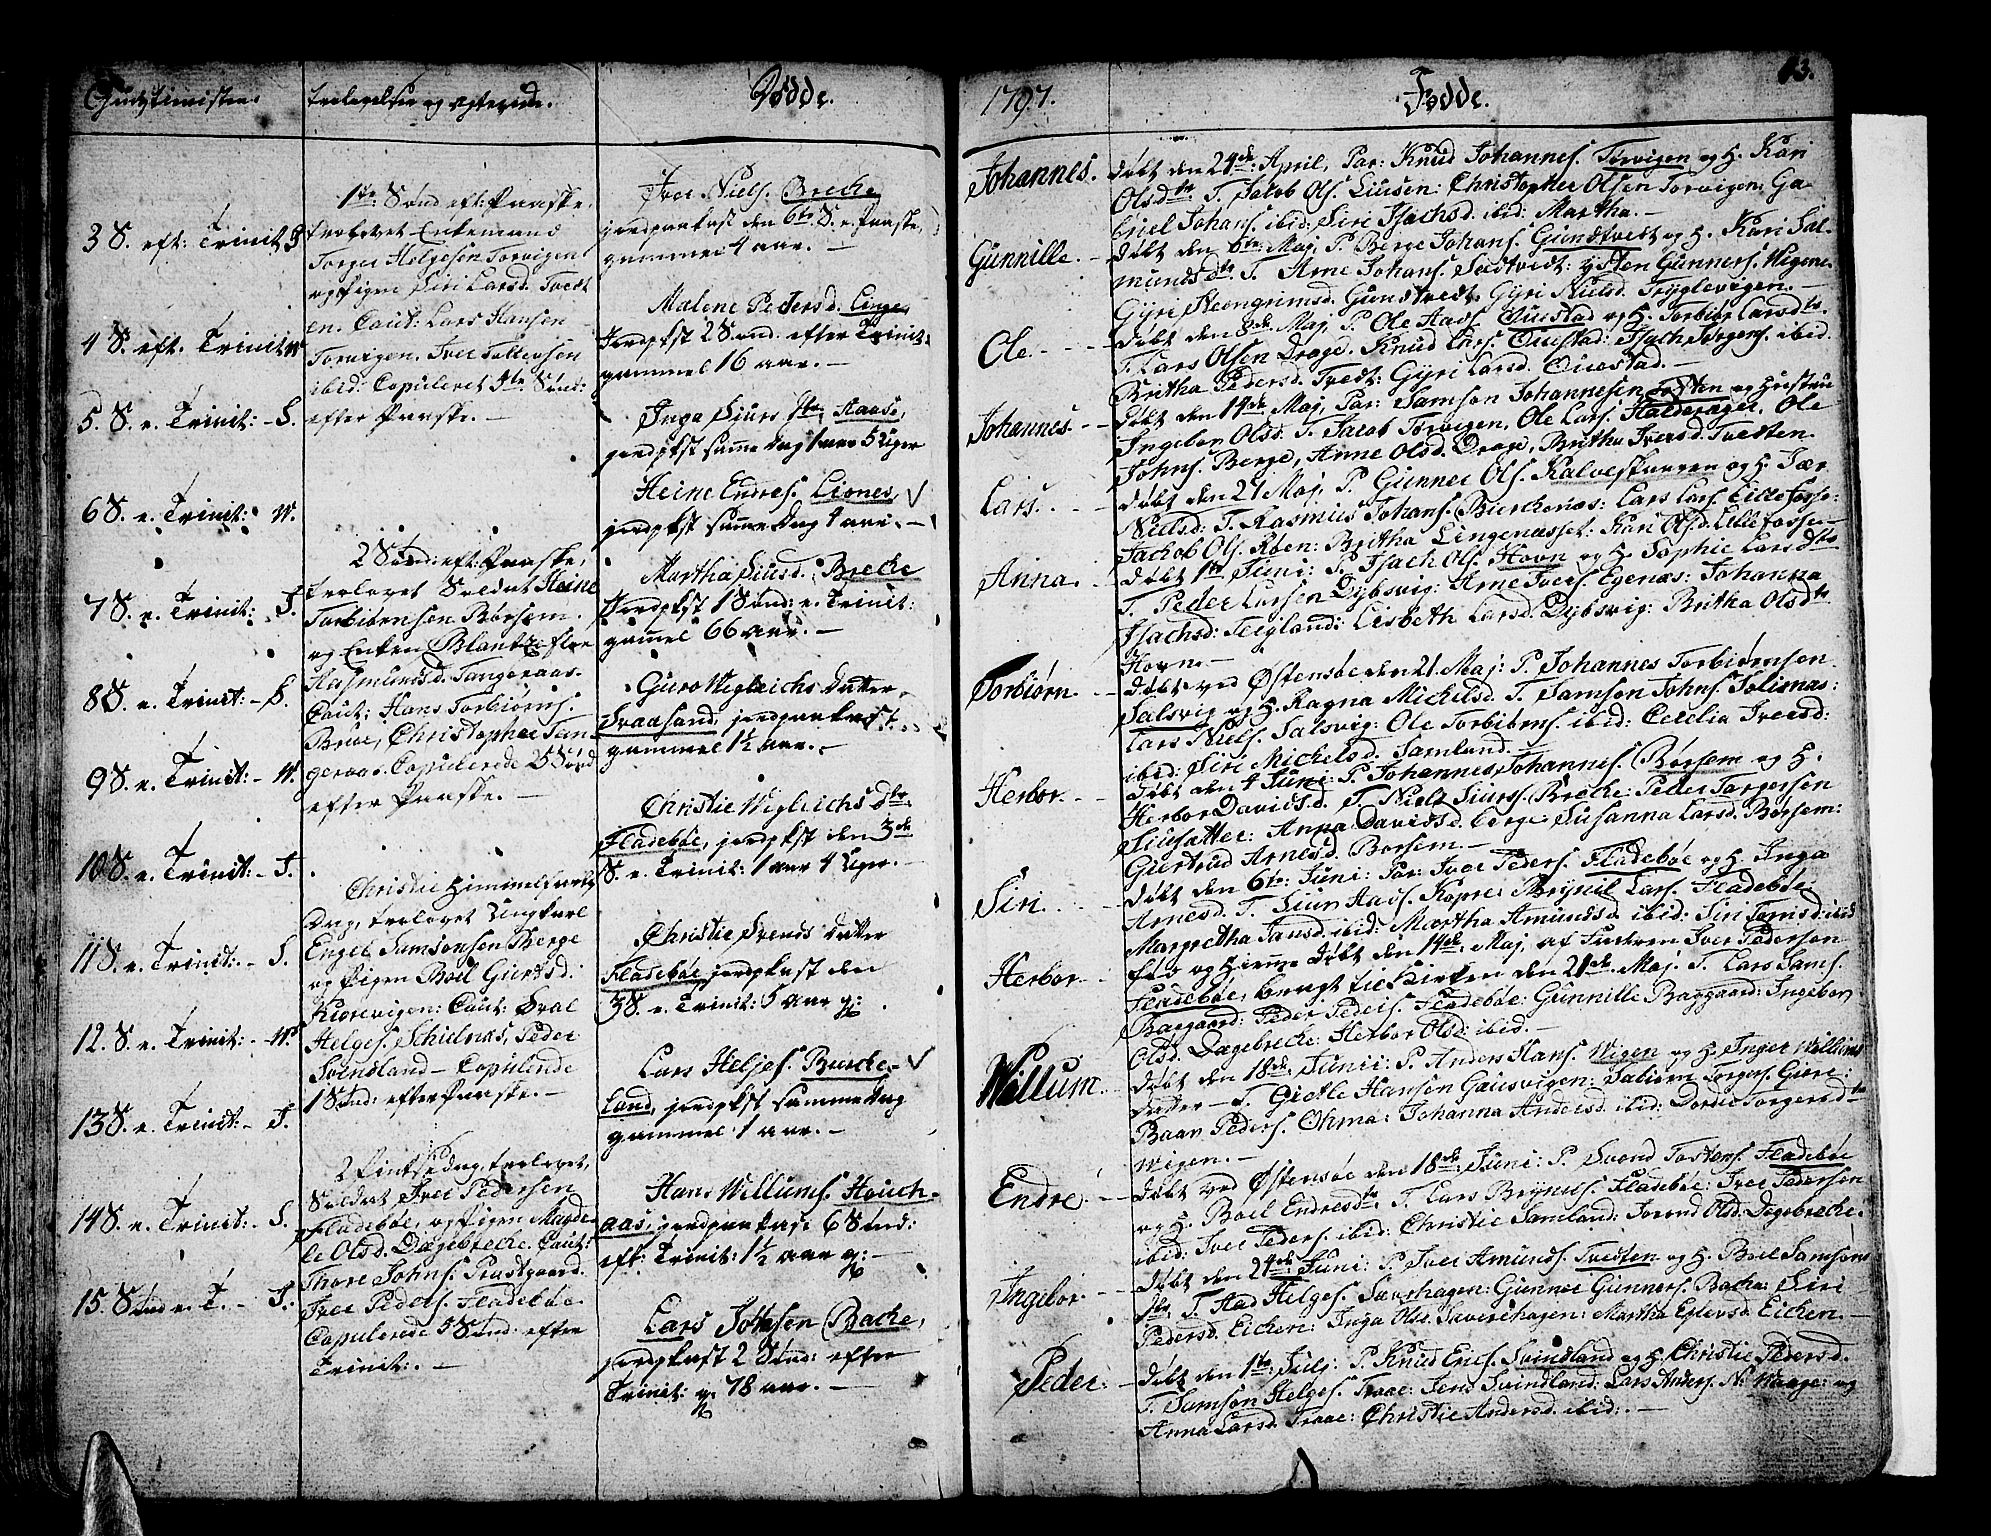 Gudstienisten.
3 S. eft: Trinit: S
4 S. eft. Trinit: W
5 S. e. Trinit: - S.
6 S. e. Trinit: W.
7 S. e. Trinit: S.
8 S. e. Trinit: - S.
9 S. e. Trinit: - W.
10 S. e. Trinit: - S.
11 S. e. Trinit: - S.
12. S. e. Trinit: - W.
13 S. e. Trinit: - S.
14 S. e. Trinit: - S.
15. Sønd e. T. - S.
Trolovelser og ægteviede.
1te Sønd eft: Paaske,
trolovet Enkemand
Torger Helgesen Torvigen
og Pigen Siri Larsd. Tvedt
en. Caut: Lars Hansen
Torvigen, Iver
ibid: Copuleret Sønd:
efter Paaske. -
2 Sønd: eft: Paaske,
trolovet Soldat Heine
Torbiørnsen Børsem
og Enken
Rasmundsd. Tangeraas.
Caut: Hans Torbiørns.
Brue, Christopher Tan-
geraas. Copulerede 2 Sønd
efter Paaske. -
Christi Himmelfarts
Dag, trolovet Ungkarl
Engel Samsonsen Berge
og Pigen Boel Giertsd.
Kiørevigen: Caut:
Helges. Skielnæs, Peder
Svindland - Copulerede
1 Sønd: efter Paaske. -
2 Pintsedag, trolovet,
Soldat Iver Pedersen
Fladebøe, og Pigen Magde-
le Olsd. Dagebrecke. Caut:
Thore Johns. Præstgaard.
Iver Peders. Fladebøe.
Copulerede 5 Sønd: efter
Trinit: -
Døde.
Iver Niels. Brecke
jordpaakast den 6te S. e. Paaske,
gammel 4 aar. -
Malene Pedersd. Linge,
Jordpkst 2 Sønd. efter Trinit:
gammel 16 aar. -
Inga Siurs Dtr. Aaase,
jordpkst samme Dag 1 aar 5 Uger
Heine Endres. Liones,
jordpkst samme Dag 1 aar. -
Martha Siursd. Brecke
Jordpkst 1 Sønd: e. Trinit:
gammel 66 aar. -
Guro Wigleichs Datter
Svaasand, jordpaakast.
gammel 1½ aar. -
Christie Wigleichs Dtr
Fladebøe, jordpkst den 3de
S. e. Trinit: 1 aar 4 Uger. -
Christie Svends Datter
Fladebøe jordpkast den
3 S. e. Trinit: 5 aar g:
Lars Heljes. Buscke-
Land, jordpkst samme Dag
gammel 1 aar. -
Hans Willums. Houch-
aas, jordpaakast 6 Sønd:
eft: Trinit: 1½ aar g: -
Lars Johnsen Bache,
jordpkast 2 Sønd: efter
Trinit: g. 78 aar. -
1797.
Fødde.
83.
Johannes. Døbt den 24de April, Par: Knud Johannes. Torvigen og H. Kari
Olsdtr T. Jacob Ols. Liusen: Christopher Olsen Torvigen: Ga-
briel Johans. ibid: Siri Isachsd. ibid: Martha. -
Gunnille. Døbt den 6te Maj, P. Berge Johans. Gundtvedt og H. Kari Sal-
mundsdtr. T. Arne Johans. Sædtvedt: Gunners. Wigene.
Gyri Steengrimsd. Gundtvedt. Gyri Nielsd. Tryglevigen. -
Ole. Døbt den 8de Maj, P. Ole Aads. Ouestad og H. Torbiør Larsdtr.
T. Lars Olsen Drage. Knud Lars. Ouestad: Isach Torgers. ibid.
Britha Pedersd. Tvedt: Gyri Larsd. Ouestad. -
Johannes. Døbt den 14de Maj, Par: Samson Johannesen og Hustru
Ingebor Olsd. T. Jacob Torvigen, Ole Lars. Haldorager. Ole
Johns. Berge, Anne Olsd. Drage, Britha Iversd. Tvedten.
Lars. Døbt den 21 Maj, P. Gunner Ols. Kalveskaaren og H.
Nielsd: T. Rasmus Johans. Burckenæs: Lars Lars. Lille Fosse-
Jachob Ols. Røen: Britha Lingenæsset: Kari Olsd. Lille Fosse-
Anna. Døbt 1te Juni: P. Isach Ols. Hovn og H. Sophie Larsdtr
T. Peder Larsen Dybsvig: Arne Ivers. Egenæs: Johanna
Isachsd: Teigland: Lisbeth Larsd. Dybsvig: Britha Olsdtr
Hovn. -
Torbiørn. Døbt ved Østensøe den 21. Maj: P. Johannes Torbiørnsen
Salsvig og H. Ragna Michelsd. T. Samson Johns. Solesnæs:
Lars Niels. Salsvig: Ole Torbiørns. ibid: Cecelia Iversd:
ibid: Siri Michelsd. Samland. -
Herbor. Døbt den 4 Juni: P. Johannes Johannes. Børsem og H.
Herbor Davidsd. T. Niels Siurs. Brecke: Peder Torgersen
Siusætter: Anna Davidsd. Borge: Susanna Larsd. Børsem:
Giertrud Arnesd. Børsem. -
Siri. Døbt den 6te Juni: Par: Iver Peders. Fladebøe og H. Inga
Arnesd. T. Siur Aads. Kopre: Brynil Lars. Fladebøe:
Margretha Jansd. ibid: Martha Amundsd. ibid: Siri Tomsd. ibid
Herbor. Fød og Hieme Døbt den 14de Maj, af Faderen Iver Pedersen
Fladebøe, bragt til Kirken den 21de Maj. T. Lars Sams.
Baggaard: Peder Peders. Fladebøe: Gunnille Baggaard: Ingebor
Olsd. Dagebrecke: Herbor Olsd: ibid. -
Willum. Døbt den 18de Junii: P. Anders Hans. Wigen og H. Inger Willums
Datter - T. Gietle Hansen Gausvigen: Torgers. Gure:
Baar Peders. Ohma: Johanna Andersd. ibid: Dordie Torgersdtr
Wigen. -
Endre. Døbt ved Østensøe den 18de Juni: P. Svend Tostens. Fladebøe
og H. Boel Endresdtr. T. Lars Bryniels. Fladebøe: Iver Pedersen
ibid: Iver Peders. ibid: Christie Samland: Torend Olsd. Dagebrecke.
Ingebor. Døbt den 24de Juni: P. Iver Amunds. Tvedten og H. Boel Samsons
Dtr. T. Aad Helges. Sævrhagen: Gunner Gunners. Backa: Siri
Pedersd. Eichen: Inga Olsd. Saverehagen: Martha Eylevsd. Eichen. -
Peder. Døbt den 1te Julj: P. Knud Erics. Svindland og H. Christie Pedersd.
T. Samson Helges. Traae: Jens Svindland: Lars Anders. N: Waage: og
Anna Larsd. Traae: Christie Andersd. ibid: -